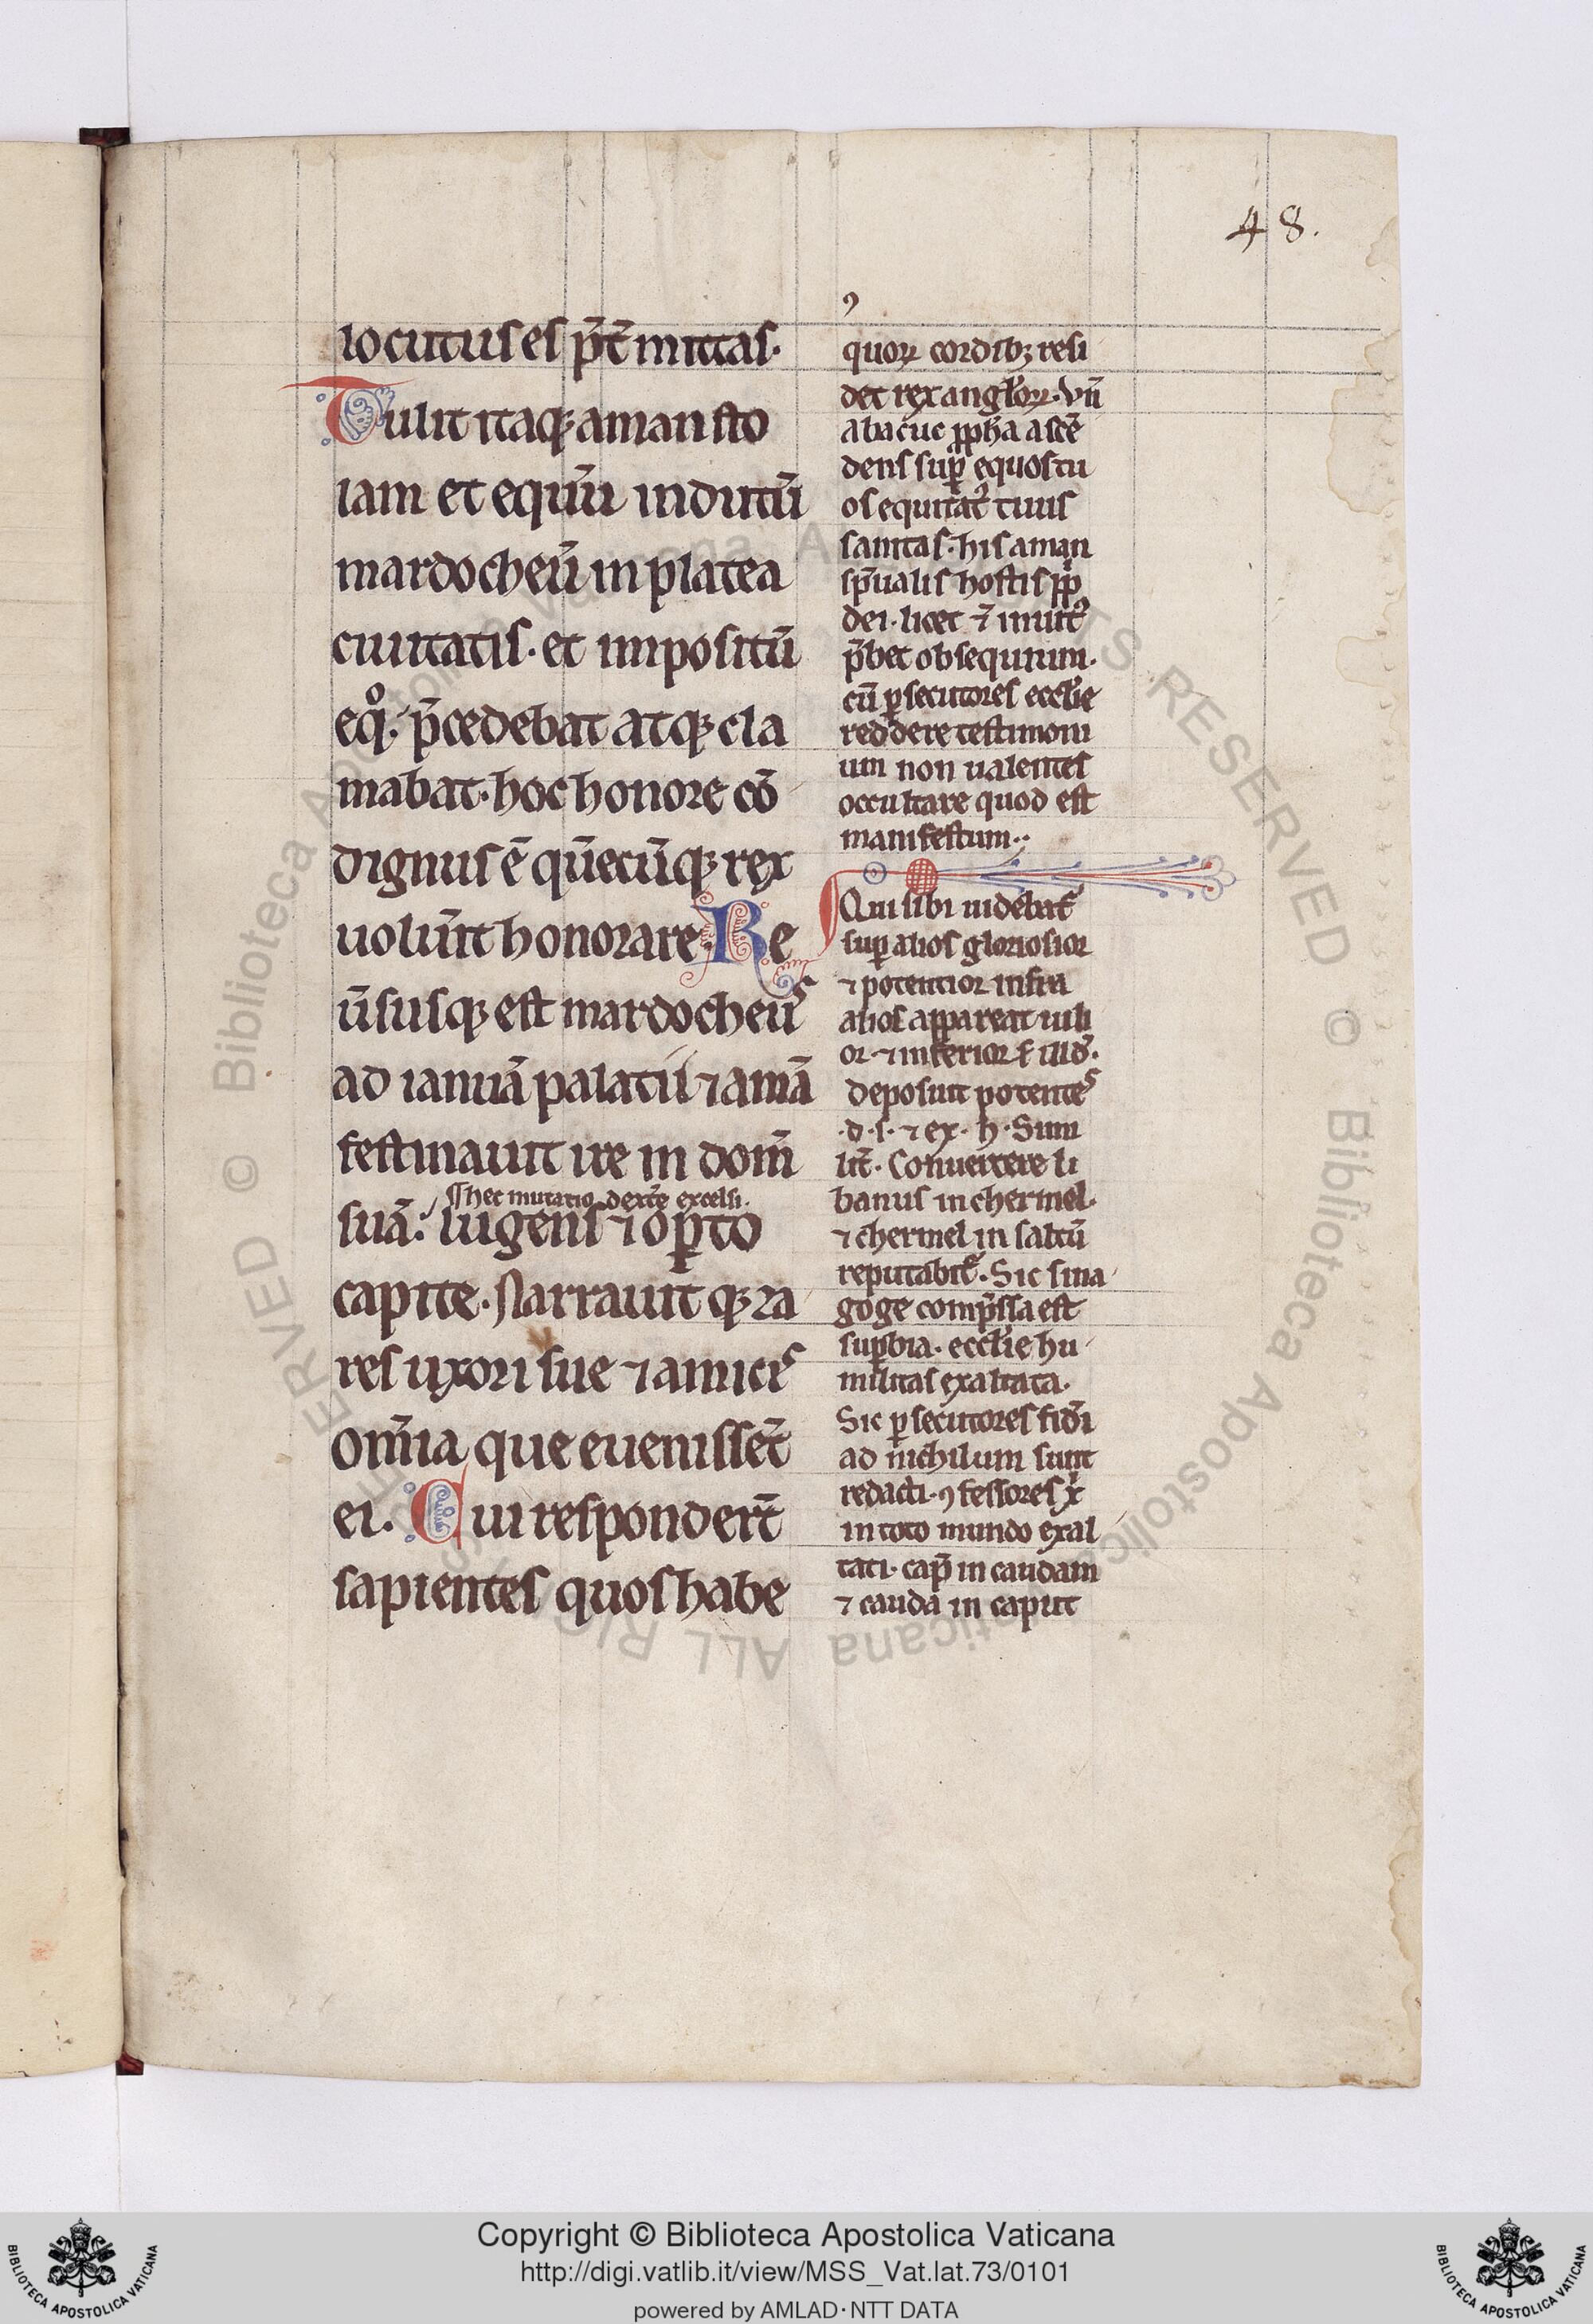 48.
locutus es p̄t̄mittas·
Tulit itaq; aman sto
iam et equū indutū
mardocheū in platea
ciuitatis· et impositū
eqͦ· p̄cedebat atq; cla
mabat· hoc honore cō
dignus ē quēcūq; rex
uolūit honorare Re
ūsusq; est mardocheus
ad ianuā palatii ⁊ amā
festinauit ire in domū
¶hec mutatio dextē excelsi·
suā· lugens ⁊ opꝑto
capite· Narrauit q; za
res uxori sue ⁊ amicis
om̄ia que euenissēt
ei· Cui responderūt
sapientes quos habe
quoꝝ cordib; resi
det rex angl̄oꝝ· vn̄
abacuc ꝓph̄a ascē
dens suꝑ equos tu
os equitatꝰ tuus
sanitas· his aman
sp̄ualis hostis pp̄
dei· licet ⁊ inuitꝰ
p̄bet obsequium·
cū ꝑsecutores eccl̄ie
reddere testimoni
um non ualentes
occultare quod est
manifestum·
Qui sibi uidebat᷑
suꝑ alios gloriosior
⁊ potentior infra
alios appareat uili
or ⁊ inferior
deposuit potentes
·d·s· ⁊ ex· h· Sim
lit̄· Conuertere li
banus in chermel·
⁊ chermel in saltū
reputabit᷑· Sic sina
goge comp̄ssa est
suꝑbia· eccl̄ie hu
militas exaltata·
Sic ꝑsecutores fidei
ad nichilum sunt
redacti· ꝯfessores x̄
in toto mundo exal
tati· cap̄ in caudam
⁊ cauda in caput
Copyright © Biblioteca Apostolica Vaticana
http://digi.vatlib.it/view/MSS_Vat.lat.73/0101
powered by AMLAD·NTT DATA
BIBLIOTECA APOSTOLICA VATICANA
BIBLIOTECA APOSTOLICA VATICANA